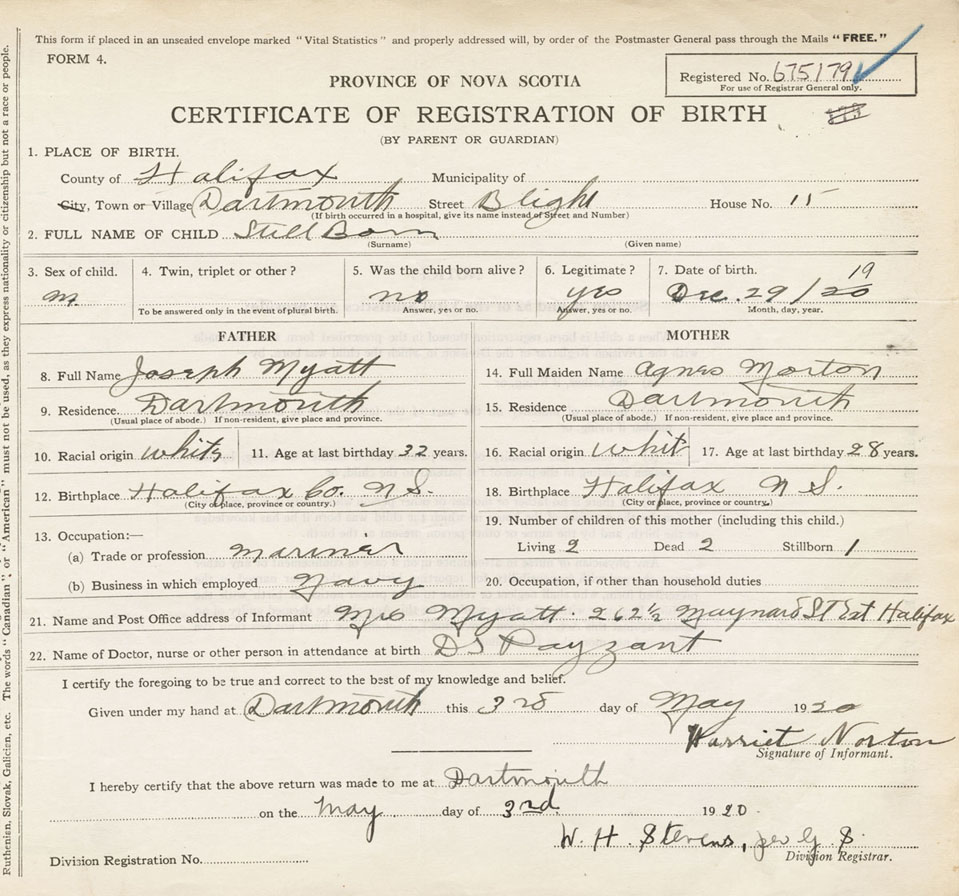 This form if placed in an unsealed envelope marked "Vital Statistics" and properly addressed will, by order of the Postmaster General pass through the Mails "FREE."
FORM 4.
Registered No. 675179
For use of Registrar General only.
PROVINCE OF NOVA SCOTIA
CERTIFICATE OF REGISTRATION OF BIRTH
(BY PARENT OR GUARDIAN)
1. PLACE OF BIRTH.
County of Halifax Municipality of
City, Town or Village Dartmouth Street Blight House No. 15
(If birth occurred in a hospital, give its name instead of Street and Number)
2. FULL NAME OF CHILD Still Born
(Surname) (Given name)
3. Sex of child. 4. Twin, triplet or other? 5. Was the child born alive? 6. Legitimate? 7. Date of birth. 19
m no yes Dec. 29/20
To be answered only in the event of plural birth. Answer, yes or no. Answer, yes or no. Month, day, year.
FATHER MOTHER
8. Full Name Joseph Myatt 14. Full Maiden Name Agnes Morton
9. Residence Dartmouth 15. Residence Dartmouth
(Usual place of abode.) If non-resident, give place and province. (Usual place of abode.) If non-resident, give place and province.
10. Racial origin White 11. Age at last birthday 32 years. 16. Racial origin Whit 17. Age at last birthday 28 years.
12. Birthplace Halifax Co. N S. 18. Birthplace Halifax N S.
(City or place, province or country.) (City or place, province or country.)
13. Occupation:— 19. Number of children of this mother (including this child.)
(a) Trade or profession mariner Living 2 Dead 2 Stillborn 1
(b) Business in which employed Navy 20. Occupation, if other than household duties
21. Name and Post Office address of Informant Mrs Myatt. 262½ Maynard St Halifax
22. Name of Doctor, nurse or other person in attendance at birth Dr Payzant
I certify the foregoing to be true and correct to the best of my knowledge and belief.
Given under my hand at Dartmouth this 3rd day of May 1920
Harriet Norton
Signature of Informant.
I hereby certify that the above return was made to me at Dartmouth
on the May day of 3rd 1920.
W. H. Stevens, per G. S
Division Registrar.
Division Registration No.
Ruthenian, Slovak, Galicien, etc. The words "Canadian" or "American" must not be used, as they express nationality or citizenship but not a race or people.